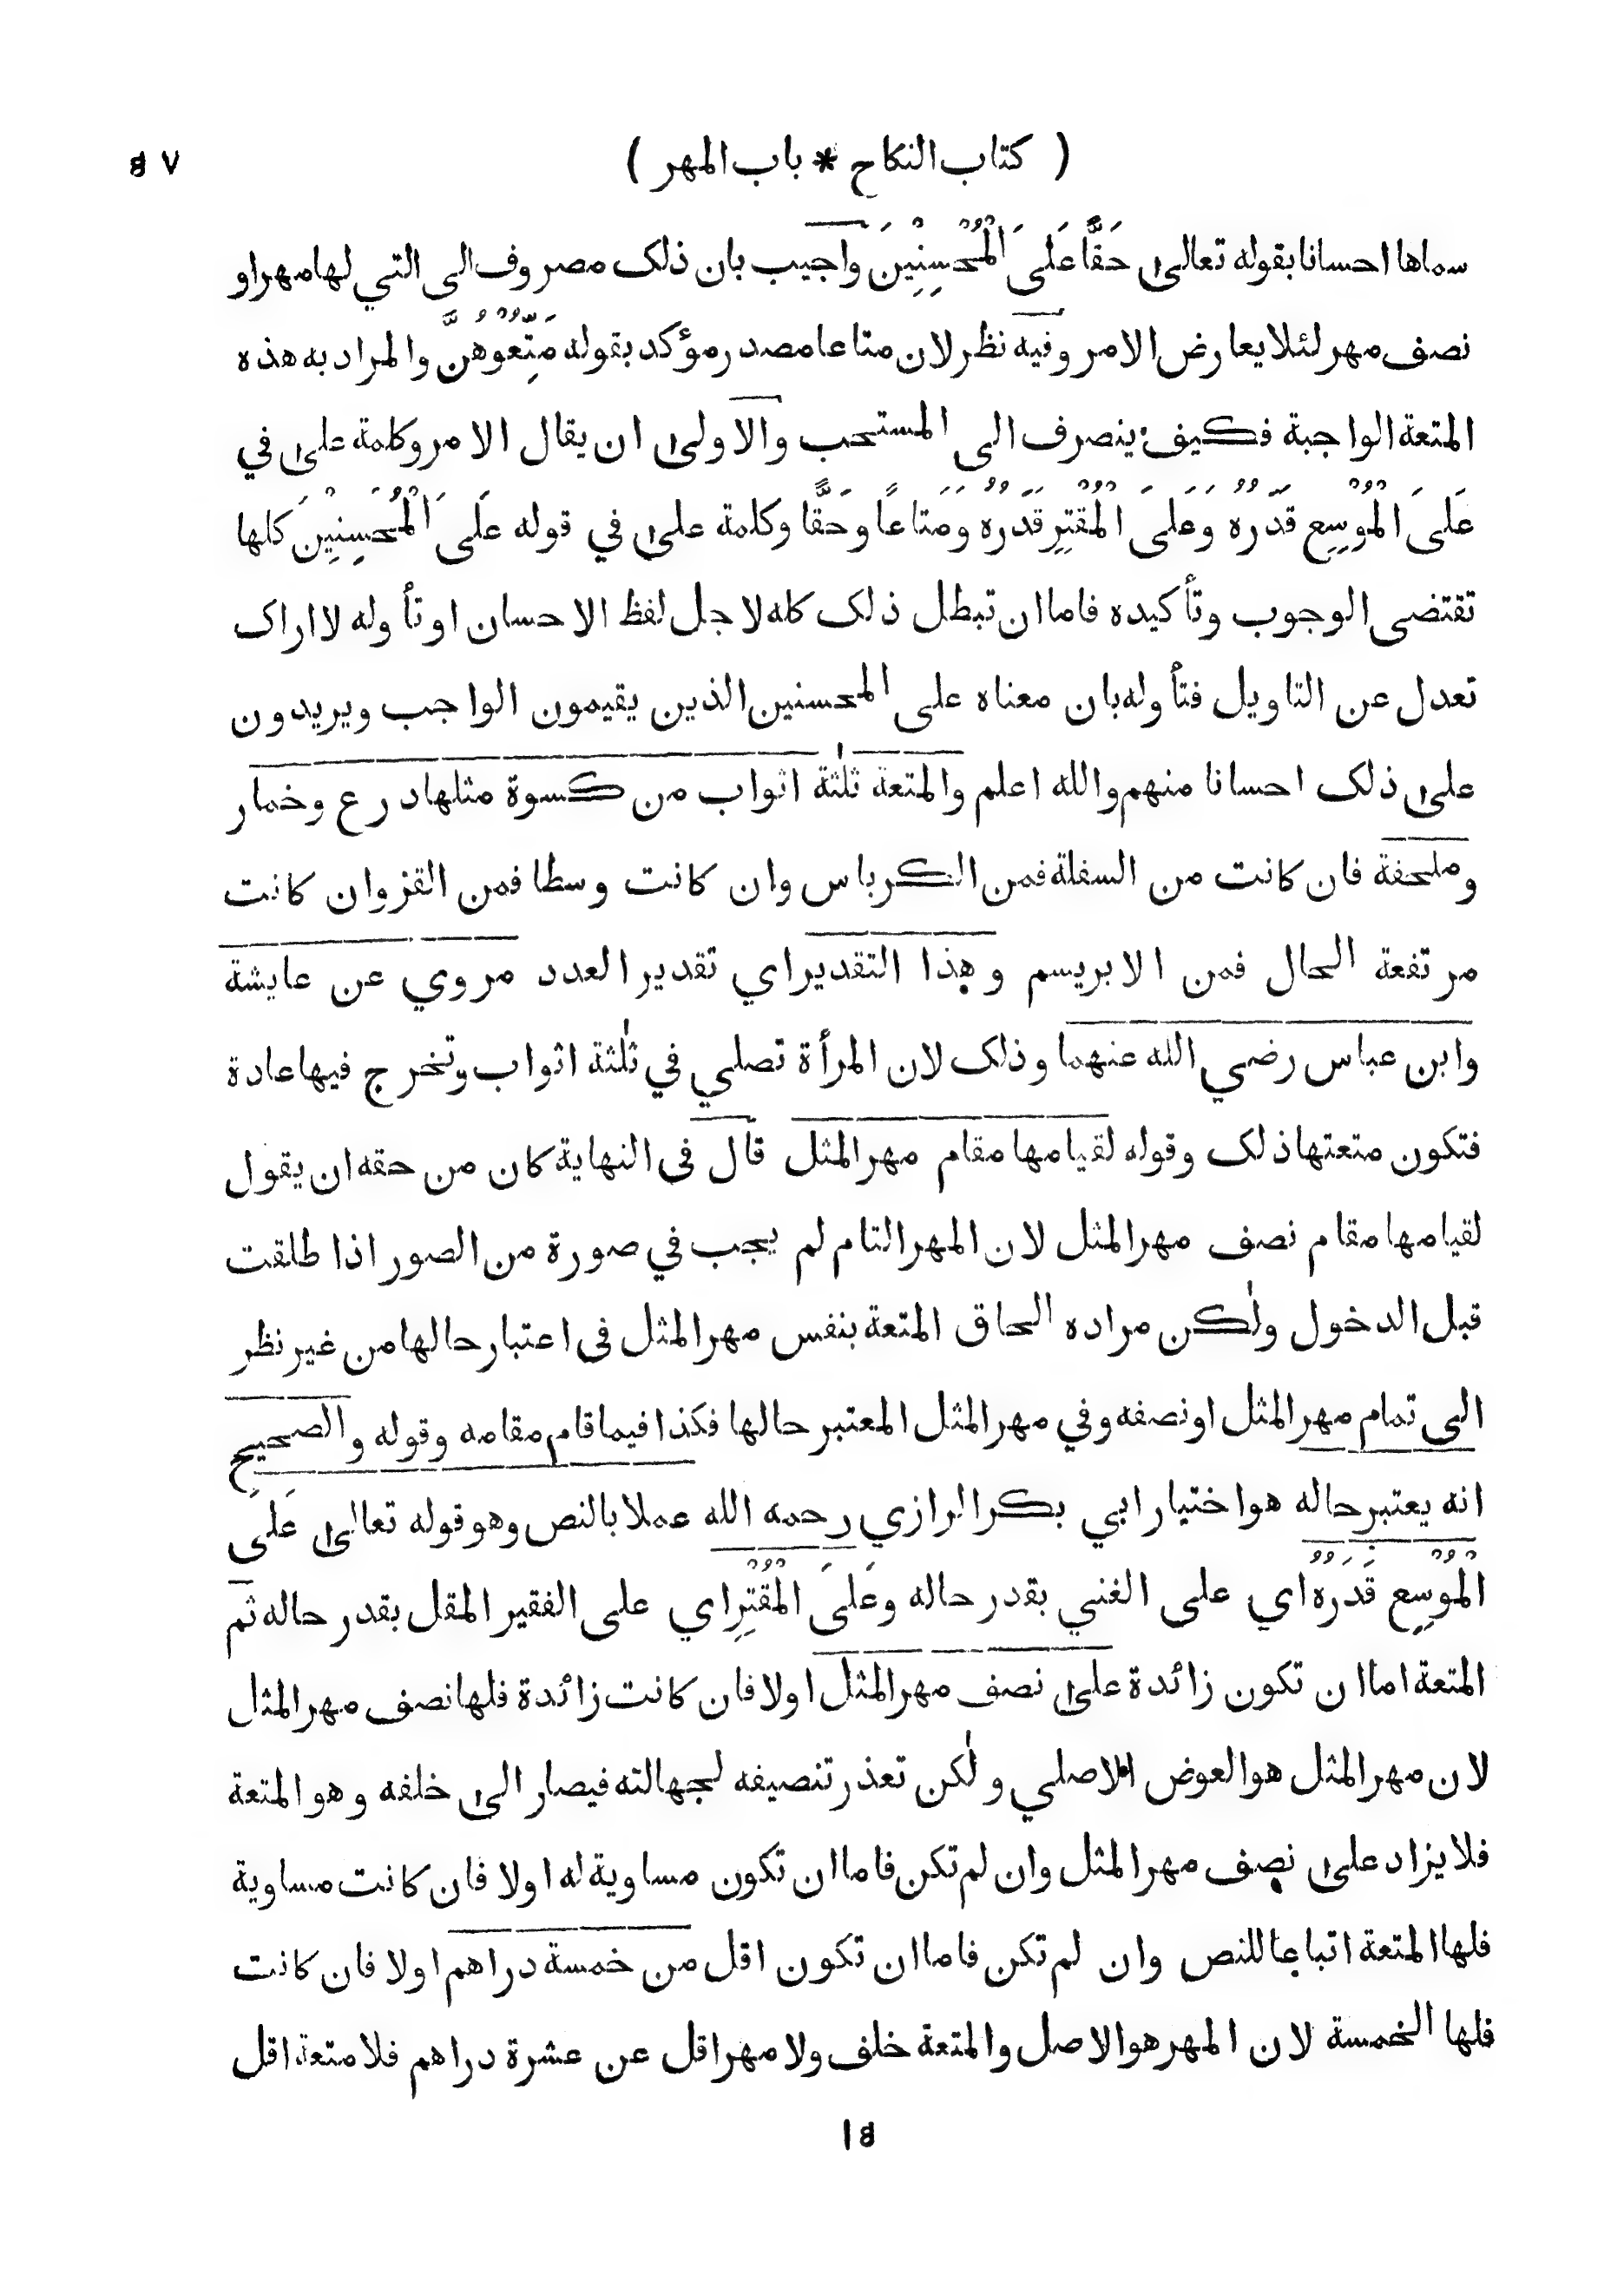 ( كتاب النكاح * باب المهر ) ۴۷
سماها احسانا بقوله تعالى حَقًّا عَلَى الْمُحْسِنِيْنَ واجيب بان ذلك مصروف الى التي لها مهر او
نصف مهر لئلا يعارض الامر وفيه نظر لان متاعا مصدر مؤكد بقوله مَتِّعُوْهُنَّ والمراد به هذه
المتعة الواجبة فكيف ينصرف الى المستحب والاولى ان يقال الامر وكلمة على في
عَلَى الْمُوْسِعِ قَدَرُهُ وَعَلَى الْمُقْتِرِ قَدَرُهُ وَمَتَاعًا وحَقًّا وكلمة على في قوله عَلَى الْمُحْسِنِيْنَ كلها
تقتضى الوجوب وتأكيده فاما ان تبطل ذلك كله لاجل لفظ الاحسان او تأوله لا اراك
تعدل عن التاويل فتأوله بان معناه على المحسنين الذين يقيمون الواجب ويريدون
على ذلك احسانا منهم والله اعلم والمتعة ثلٰثة اثواب من كسوة مثلها درع وخمار
وملحفة فان كانت من السفلة فمن الكرباس وان كانت وسطا فمن القز وان كانت
مرتفعة الحال فمن الابريسم وهذا التقدير اي تقدير العدد مروي عن عايشة
وابن عباس رضي الله عنهما وذلك لان المرأة تصلي في ثلٰثة اثواب وتخرج فيها عادة
فتكون متعتها ذلك وقوله لقيامها مقام مهر المثل قال فى النهاية كان من حقه ان يقول
لقيامها مقام نصف مهر المثل لان المهر التام لم يجب في صورة من الصور اذا طلقت
قبل الدخول ولٰكن مراده الحاق المتعة بنفس مهر المثل فى اعتبار حالها من غير نظر
الى تمام مهر المثل او نصفه وفي مهر المثل المعتبر حالها فكذا فيما قام مقامه وقوله والصحيح
انه يعتبر حاله هو اختيار ابي بكر الرازي رحمه الله عملا بالنص وهو قوله تعالى عَلَى
الْمُوْسِعِ قَدَرُهُ اي على الغني بقدر حاله وعَلَى الْمُقْتِرِ اي على الفقير المقل بقدر حاله ثم
المتعة اما ان تكون زائدة على نصف مهر المثل اولا فان كانت زائدة فلها نصف مهر المثل
لان مهر المثل هو العوض الاصلي ولٰكن تعذر تنصيفه لجهالته فيصار الى خلفه وهو المتعة
فلا يزاد على نصف مهر المثل وان لم تكن فاما ان تكون مساوية له اولا فان كانت مساوية
فلها المتعة اتباعا للنص وان لم تكن فاما ان تكون اقل من خمسة دراهم اولا فان كانت
فلها الخمسة لان المهر هو الاصل والمتعة خلف ولا مهر اقل عن عشرة دراهم فلا متعة اقل
۱۴